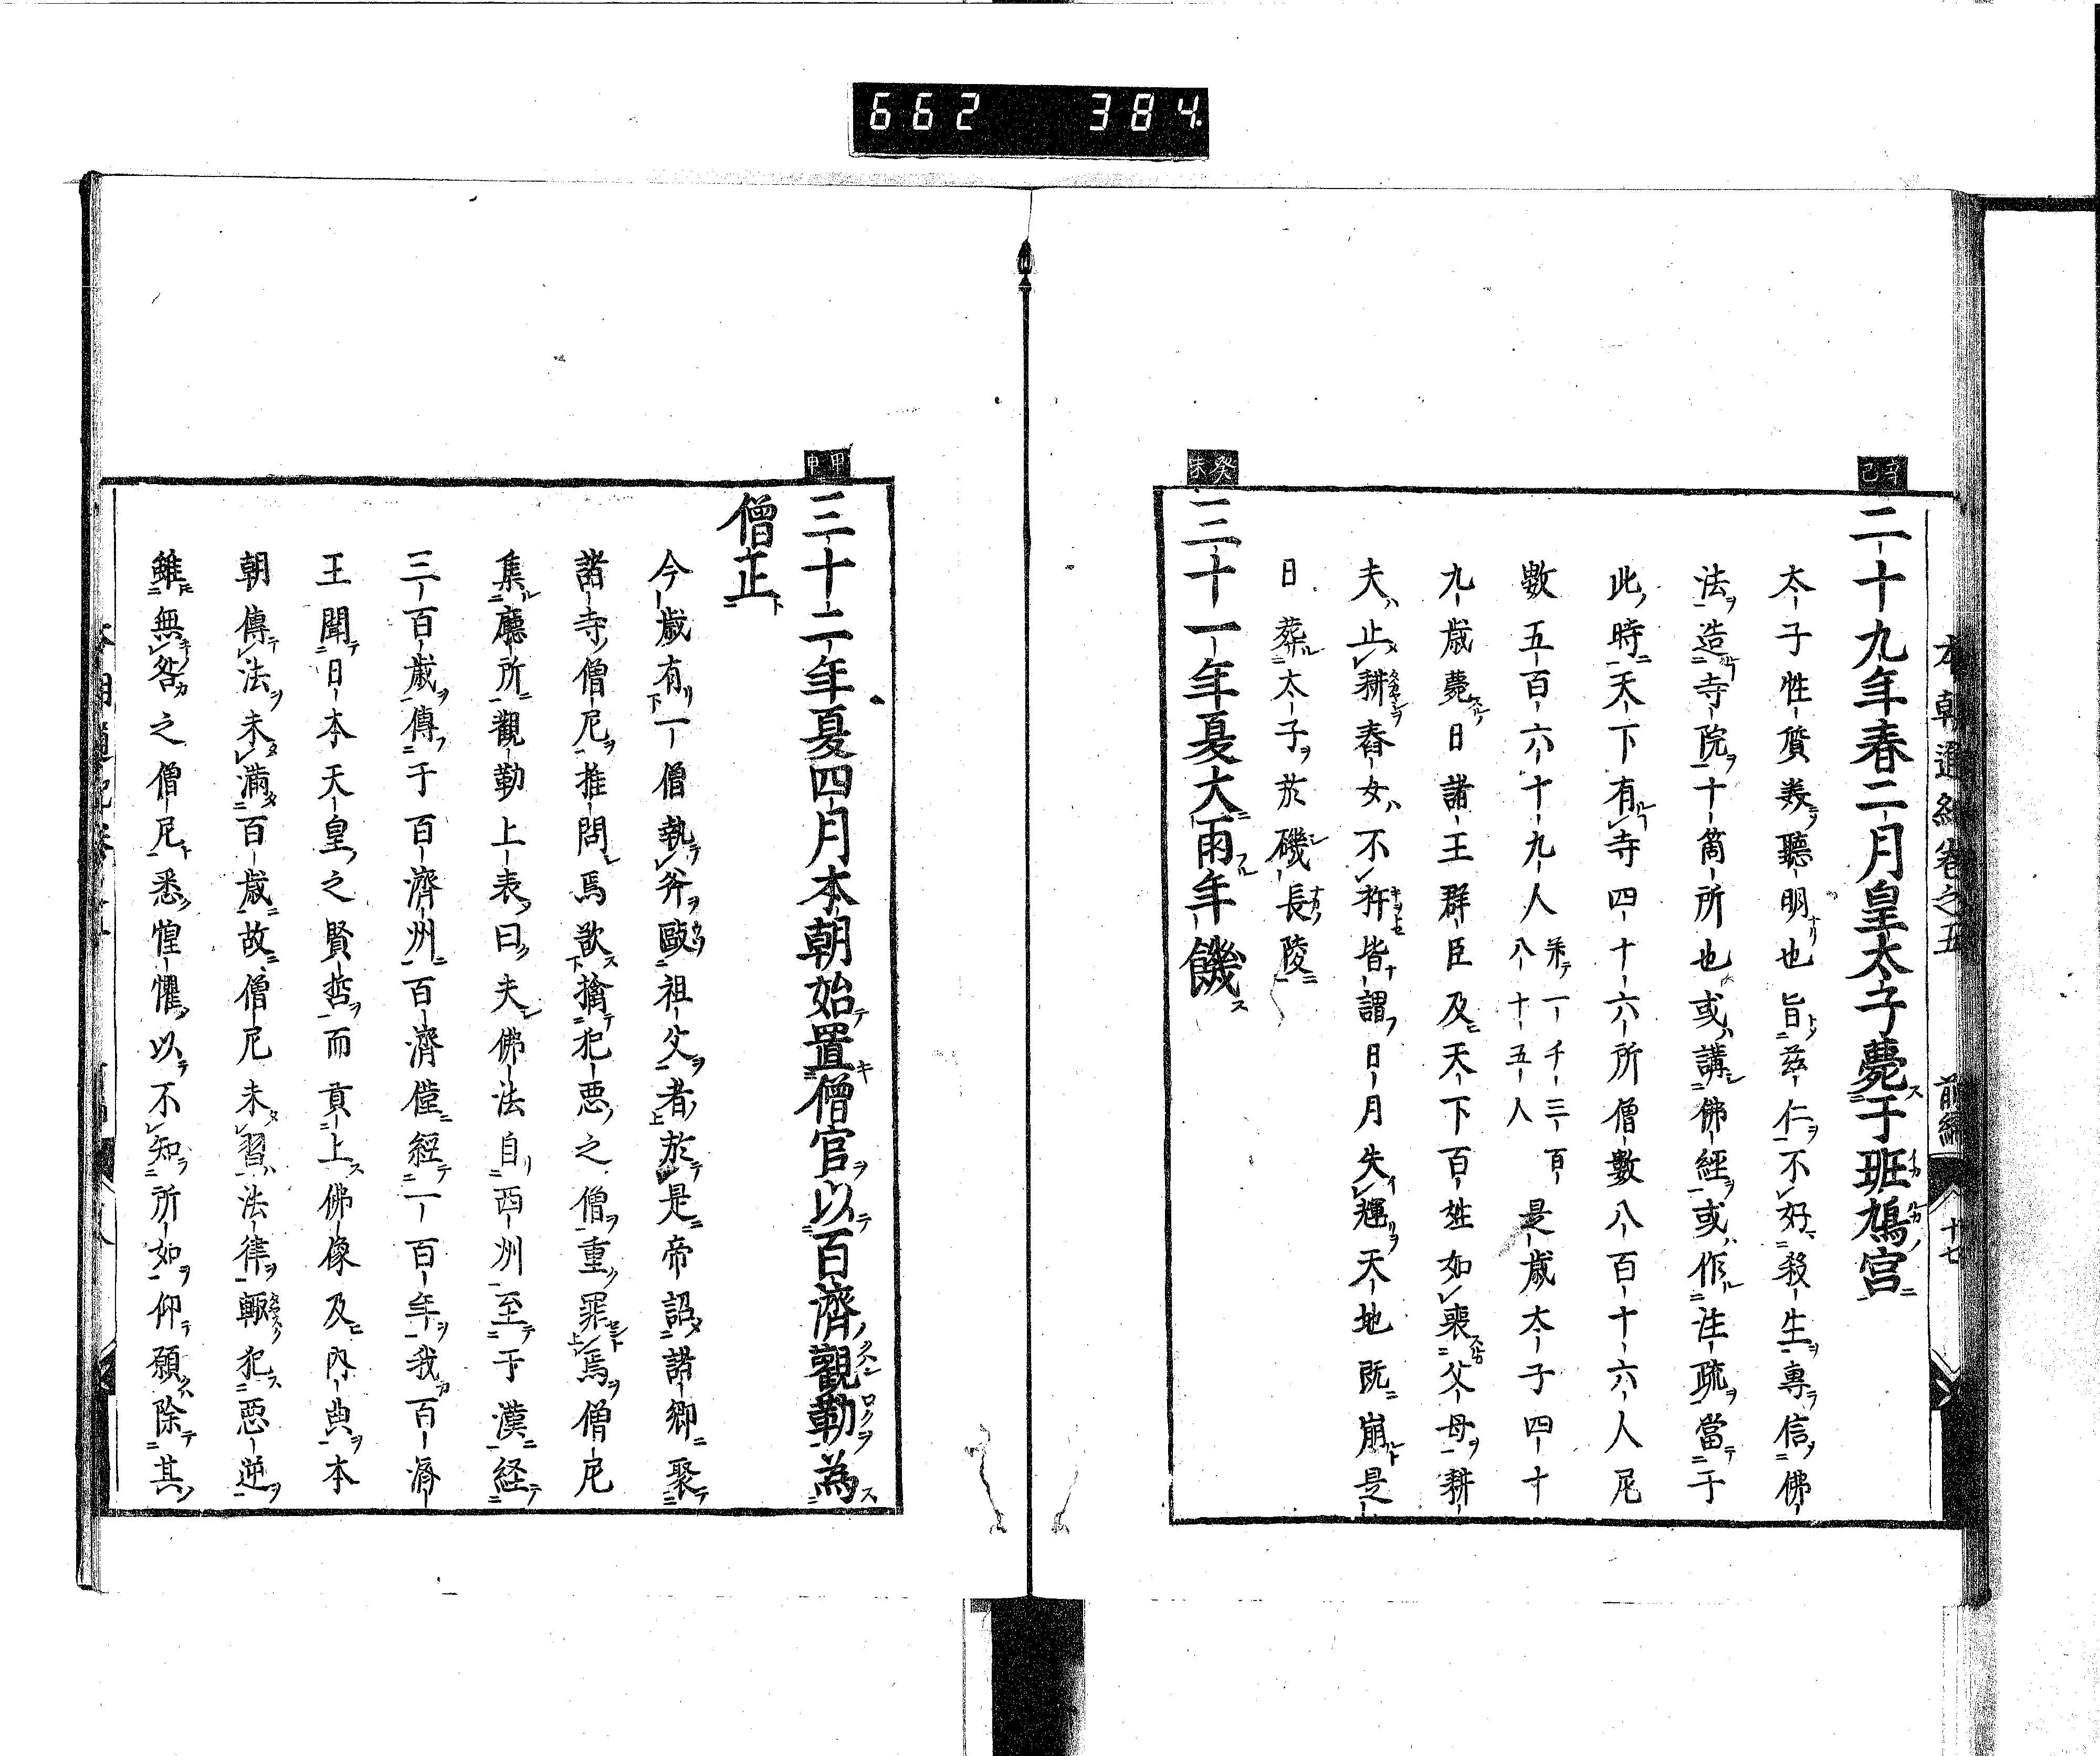 662 384
本朝通紀卷之五 前編 十七
辛巳
二十九年春二月皇太子薨于班鳩宮
太子性質美聽明也旨慈仁不好殺生專信佛
法造寺院十箇所也或講佛經或作注疏當于
此時天下有寺四十六所僧數八百十六人尼
數五百六十九人 幷テ一千三百八十五人 是歳太子四十
九歳薨日諸王群臣及天下百姓如喪父母耕
夫止耕舂女不杵皆謂日月失輝天地既崩是
日葬太子於磯長陵
癸未
三十一年夏大雨年饑
甲申
三十二年夏四月本朝始置僧官以百濟觀勒為
僧正
今歳有一僧執斧毆祖父者於是帝詔諸卿聚
諸寺僧尼推問焉欲擒犯惡之僧重罪焉僧尼
集廳所觀勒上表曰夫佛法自西州至于漢経
三百歳傳于百濟州百濟僅經一百年我百濟
王聞日本天皇之賢哲而貢上佛像及內典本
朝傳法未滿百歳故僧尼未習法律輙犯惡逆
雖無咎之僧尼悉惶懼以不知所如仰願除其